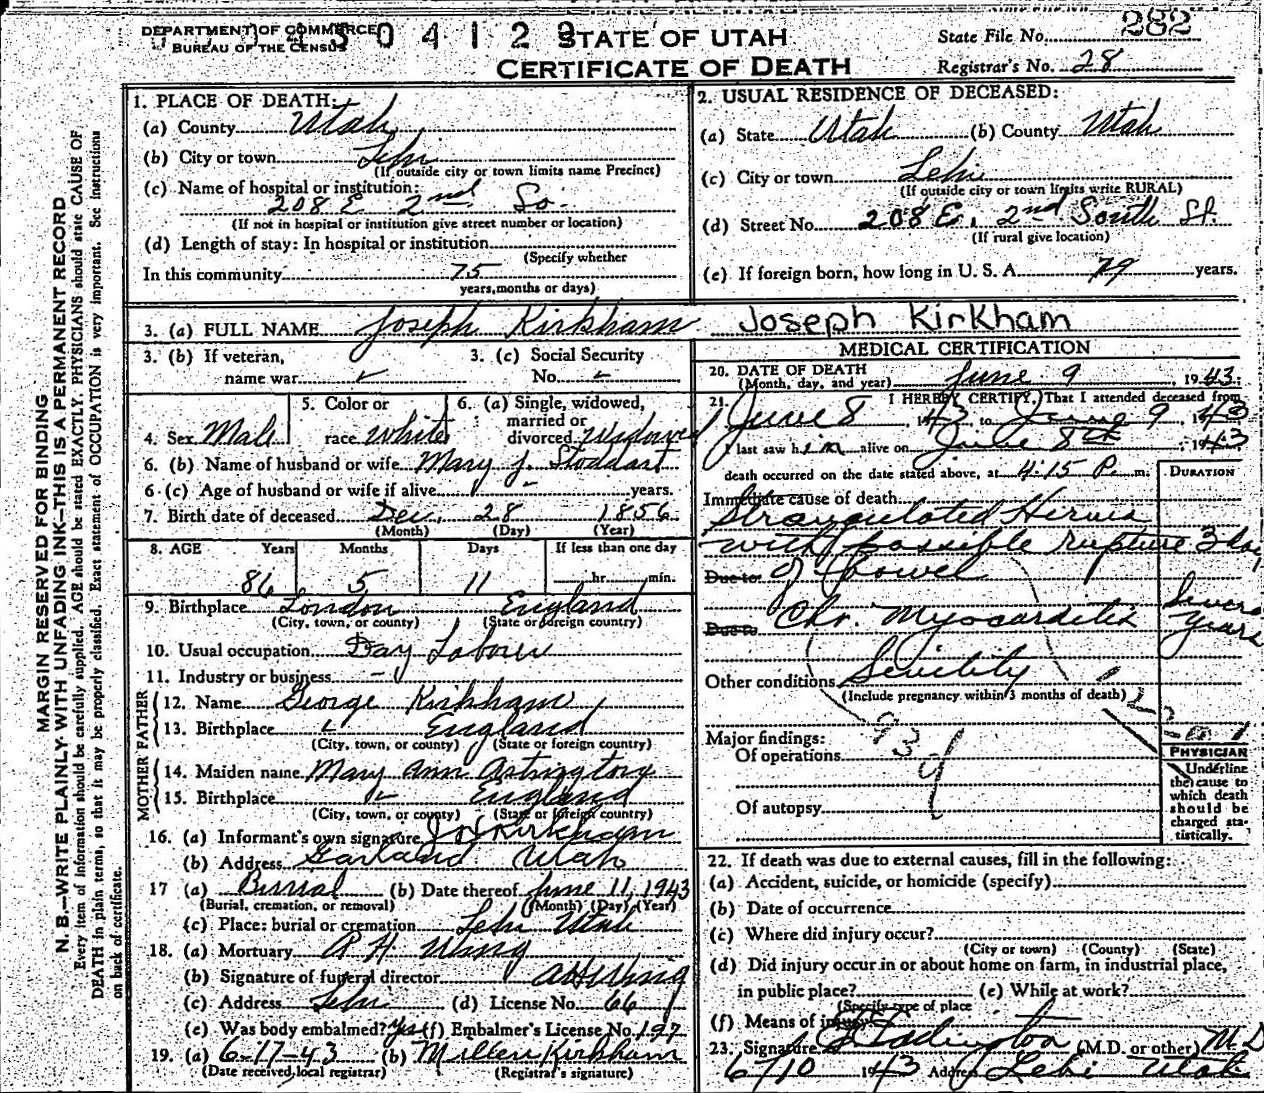 DEPARTMENT OF COMMERCE
BUREAU OF THE CENSUS
304129
STATE OF UTAH
CERTIFICATE OF DEATH
State File No. 282
Registrar's No. 28
MARGIN RESERVED FOR BINDING
N. B.—WRITE PLAINLY WITH UNFADING INK—THIS IS A PERMANENT RECORD
Every item of information should be carefully supplied. AGE should be stated EXACTLY. PHYSICIANS should state CAUSE OF
DEATH in plain terms, so that it may be properly classified. Exact statement of OCCUPATION is very important. See instructions
on back of certificate.
1. PLACE OF DEATH:
(a) County Utah
(b) City or town Lehi
(If outside city or town limits name Precinct)
(c) Name of hospital or institution:
208 E 2nd So.
(If not in hospital or institution give street number or location)
(d) Length of stay: In hospital or institution
(Specify whether
In this community 75
years, months or days)
2. USUAL RESIDENCE OF DECEASED:
(a) State Utah (b) County Utah
(c) City or town Lehi
(If outside city or town limits write RURAL)
(d) Street No. 208 E. 2nd South St.
(If rural give location)
(e) If foreign born, how long in U. S. A. 79 years.
3. (a) FULL NAME Joseph Kirkham Joseph Kirkham
3. (b) If veteran,
name war
3. (c) Social Security
No.
4. Sex Male
5. Color or
race White
6. (a) Single, widowed,
married or
divorced Widowed
6. (b) Name of husband or wife Mary J. Stoddart
6 (c) Age of husband or wife if alive - years.
7. Birth date of deceased Dec. 28 1856
(Month) (Day) (Year)
8. AGE Years Months Days If less than one day
86 5 11 hr. min.
9. Birthplace London England
(City, town, or county) (State or foreign country)
10. Usual occupation Day Laborer
11. Industry or business -
FATHER
12. Name George Kirkham
13. Birthplace England
(City, town, or county) (State or foreign country)
MOTHER
14. Maiden name Mary Ann
15. Birthplace England
(City, town, or county) (State or foreign country)
16. (a) Informant's own signature Kirkham
(b) Address Garland Utah
17 (a) Burial (b) Date thereof June 11, 1943
(Burial, cremation, or removal) (Month) (Day) (Year)
(c) Place: burial or cremation Lehi Utah
18. (a) Mortuary A H Wing
(b) Signature of funeral director A H Wing
(c) Address Lehi (d) License No. 66
(e) Was body embalmed? Yes (f) Embalmer's License No. 197
19. (a) 6-17-43 (b) Kirkham
(Date received local registrar) (Registrar's signature)
MEDICAL CERTIFICATION
20. DATE OF DEATH
(Month, day, and year) June 9, 1943.
21. I HEREBY CERTIFY, That I attended deceased from
June 8, 1943 to June 9, 1943
I last saw him alive on June 8th, 1943
death occurred on the date stated above, at 4:15 P. m.
DURATION
Immediate cause of death
Strangulated Hernia
with possible rupture 3 day
Due to of bowel
Due to Chr. Myocarditis Several
years
Other conditions Senility
(Include pregnancy within 3 months of death)
Major findings:
Of operations
93d
Of autopsy
PHYSICIAN
Underline
the cause to
which death
should be
charged sta-
tistically.
22. If death was due to external causes, fill in the following:
(a) Accident, suicide, or homicide (specify)
(b) Date of occurrence
(c) Where did injury occur?
(City or town) (County) (State)
(d) Did injury occur in or about home on farm, in industrial place,
in public place? (e) While at work?
(Specify type of place
(f) Means of injury
23. Signature Eddington (M.D. or other) M.D
6/10 1943 Address Lehi Utah